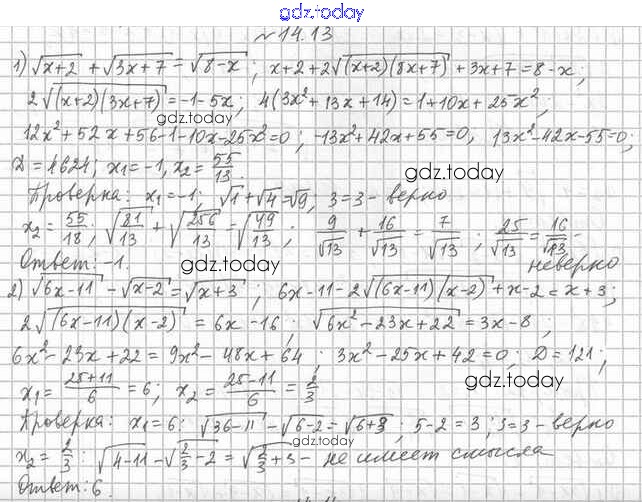 gdz.today
№14.13
1) √(x+2) + √(3x+7) = √(8-x) ; x+2+2√((x+2)(8x+7)) +3x+7=8-x;
2√((x+2)(3x+7)) =-1-5x; 4(3x²+13x+14)=1+10x+25x²;
gdz.today
12x²+52x+56-1-10x-25x²=0; -13x²+42x+55=0, 13x²-42x-55=0;
D=4624; x₁=-1, x₂= 55/13.
gdz.today
Проверка: x₁=-1; √1+√4=√9, 3=3- верно
x₂= 55/18; √(81/13) + √(256/13) = √(49/13) ; 9/√13 + 16/√13 = 7/√13 ; 25/√13 = 16/√13 -
gdz.today
неверно
Ответ: -1.
gdz.today
2) √(6x-11) - √(x-2) = √(x+3) ; 6x-11-2√((6x-11)(x-2)) +x-2=x+3;
2√((6x-11)(x-2)) = 6x-16; √(6x²-23x+22) =3x-8;
gdz.today
6x²-23x+22=9x²-48x+64; 3x²-25x+42=0; D=121;
x₁= (25+11)/6 =6; x₂= (25-11)/6 = 2/3
gdz.today
Проверка: x₁=6: √(36-11) - √(6-2) = √(6+3) ; 5-2=3; 3=3- верно
gdz.today
x₂= 2/3: √(4-11) - √(2/3-2) = √(2/3+3) - не имеет смысла
Ответ: 6.